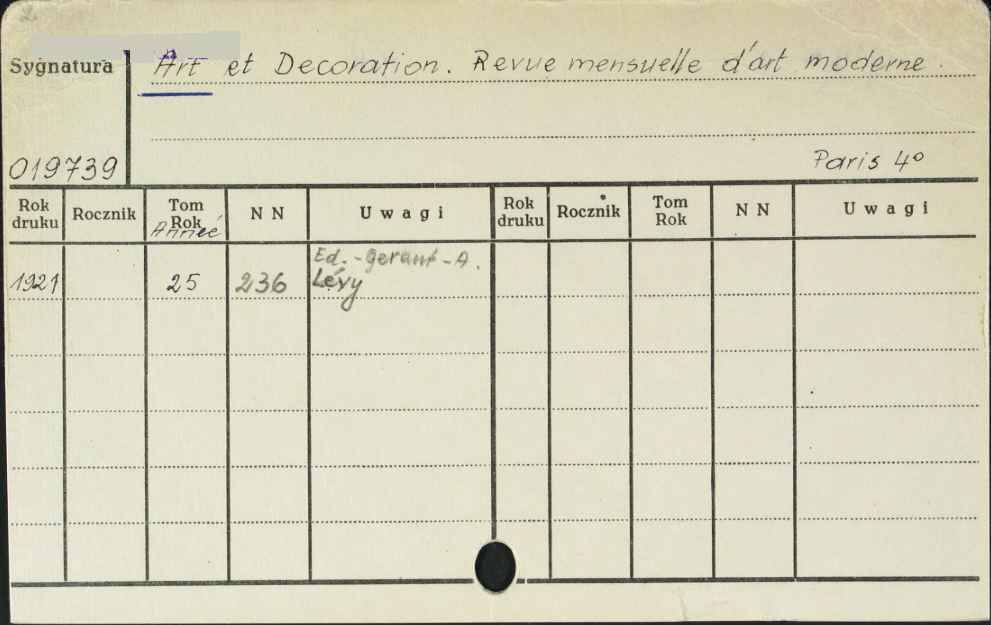 Sygnatura Art et Decoration. Revue mensuelle d'art moderne.
019739
Paris 4°
Rok druku Rocznik Tom Rok Année N N Uwagi Rok druku Rocznik Tom Rok N N Uwagi
Ed. - Gerant - A.
1921 25 236 Lévy